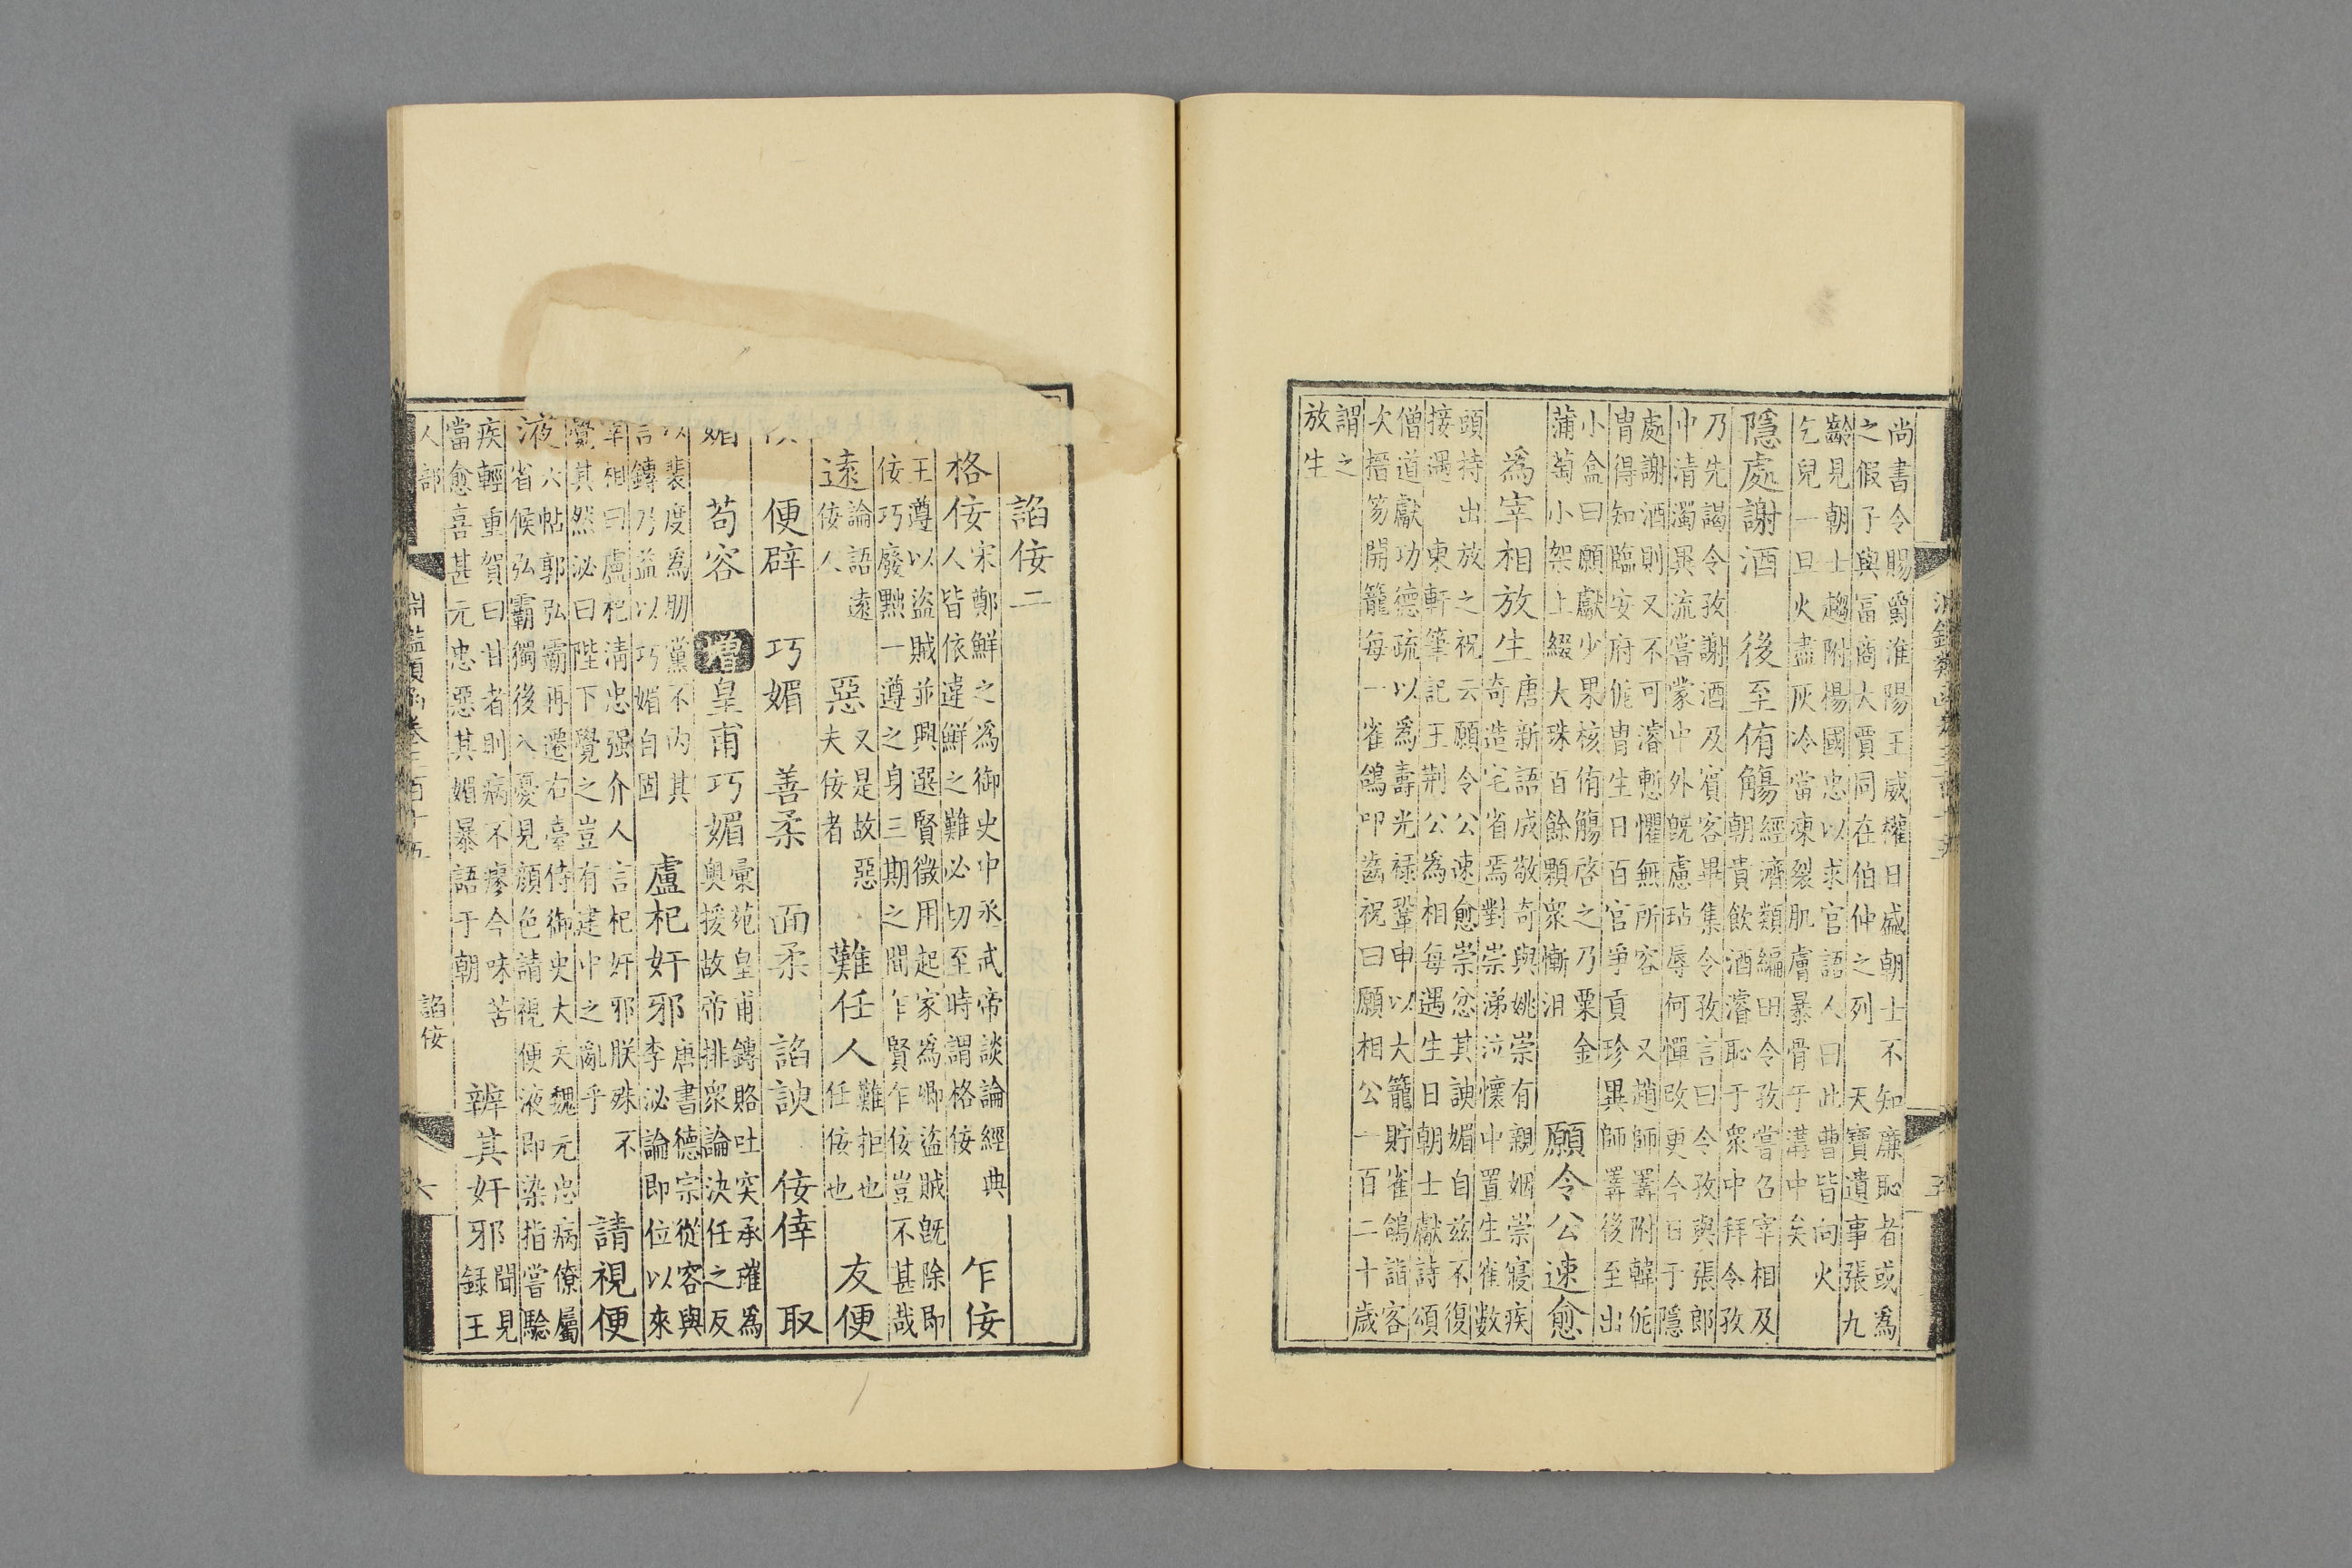 尚書令賜爵淮陽王威權日盛朝士不知廉恥者或為
之假子與富商大賈同在伯仲之列　天寶遺事張九
齡見朝士趨附楊國忠以求官語人曰此曹皆向火
乞兒一旦火盡灰冷當凍裂肌膚暴骨于溝中矣
隱處謝酒　後至侑觴
經濟類編田令孜嘗召宰相及
朝貴飲酒濬恥于衆中拜令孜
乃先謁令孜謝酒及賓客畢集令孜言曰令孜與張郎
中清濁異流嘗蒙中外旣慮玷辱何憚改更今日于隱
處謝酒則又不可濬慙懼無所容　又趙師𢍰附韓侂
冑得知臨安府侂冑生日百官爭貢珍異師𢍰後至出
小盒曰願獻少果核侑觴啓之乃粟金
蒲萄小架上綴大珠百餘顆衆慚沮
願令公速愈
為宰相放生
唐新語成敬奇與姚崇有親姻崇寢疾
奇造宅省焉對崇涕泣懷中置生雀數
頭持出放之祝云願令公速愈崇忿其諛媚自兹不復
接遇　東軒筆記王荆公為相每遇生日朝士獻詩頌
僧道獻功德疏以為壽光祿鞏申以大籠貯雀鴿詣客
次搢笏開籠每一雀鴿叩齒祝曰願相公一百二十歲
謂之
放生
諂佞二
格佞
宋鄭鮮之為御史中丞武帝談論經典
人皆依違鮮之難必切至時謂格佞
乍佞
王遵以盜賊並興選賢徵用起家為卿盜賊旣除即
佞巧廢黜一遵之身三期之間乍賢乍佞豈不甚哉
遠
論語遠
佞人
惡
又是故惡
夫佞者
難任人
難拒也
任佞也
友便
便辟　巧媚　善柔　面柔　諂諛　佞倖　取
媚　苟容　增　皇甫巧媚
彙苑皇甫鏄賂吐突承璀為
奧援故帝排衆論決任之反
以裴度為朋黨不內其
言鏄乃益以巧媚自固
盧杞奸邪
唐書德宗從容與
李泌論即位以來
宰相曰盧杞淸忠强介人言杞奸邪朕殊不
覺其然泌曰陛下覺之豈有建中之亂乎
請視便
液
六帖郭弘霸再遷右臺侍御史大夫魏元忠病僚屬
省候弘霸獨後入憂見顔色請視便液即染指嘗驗
疾輕重賀曰甘者則病不瘳今味苦
當愈喜甚元忠惡其媚暴語于朝
辨其奸邪
聞見
録王
人部
諂佞
六